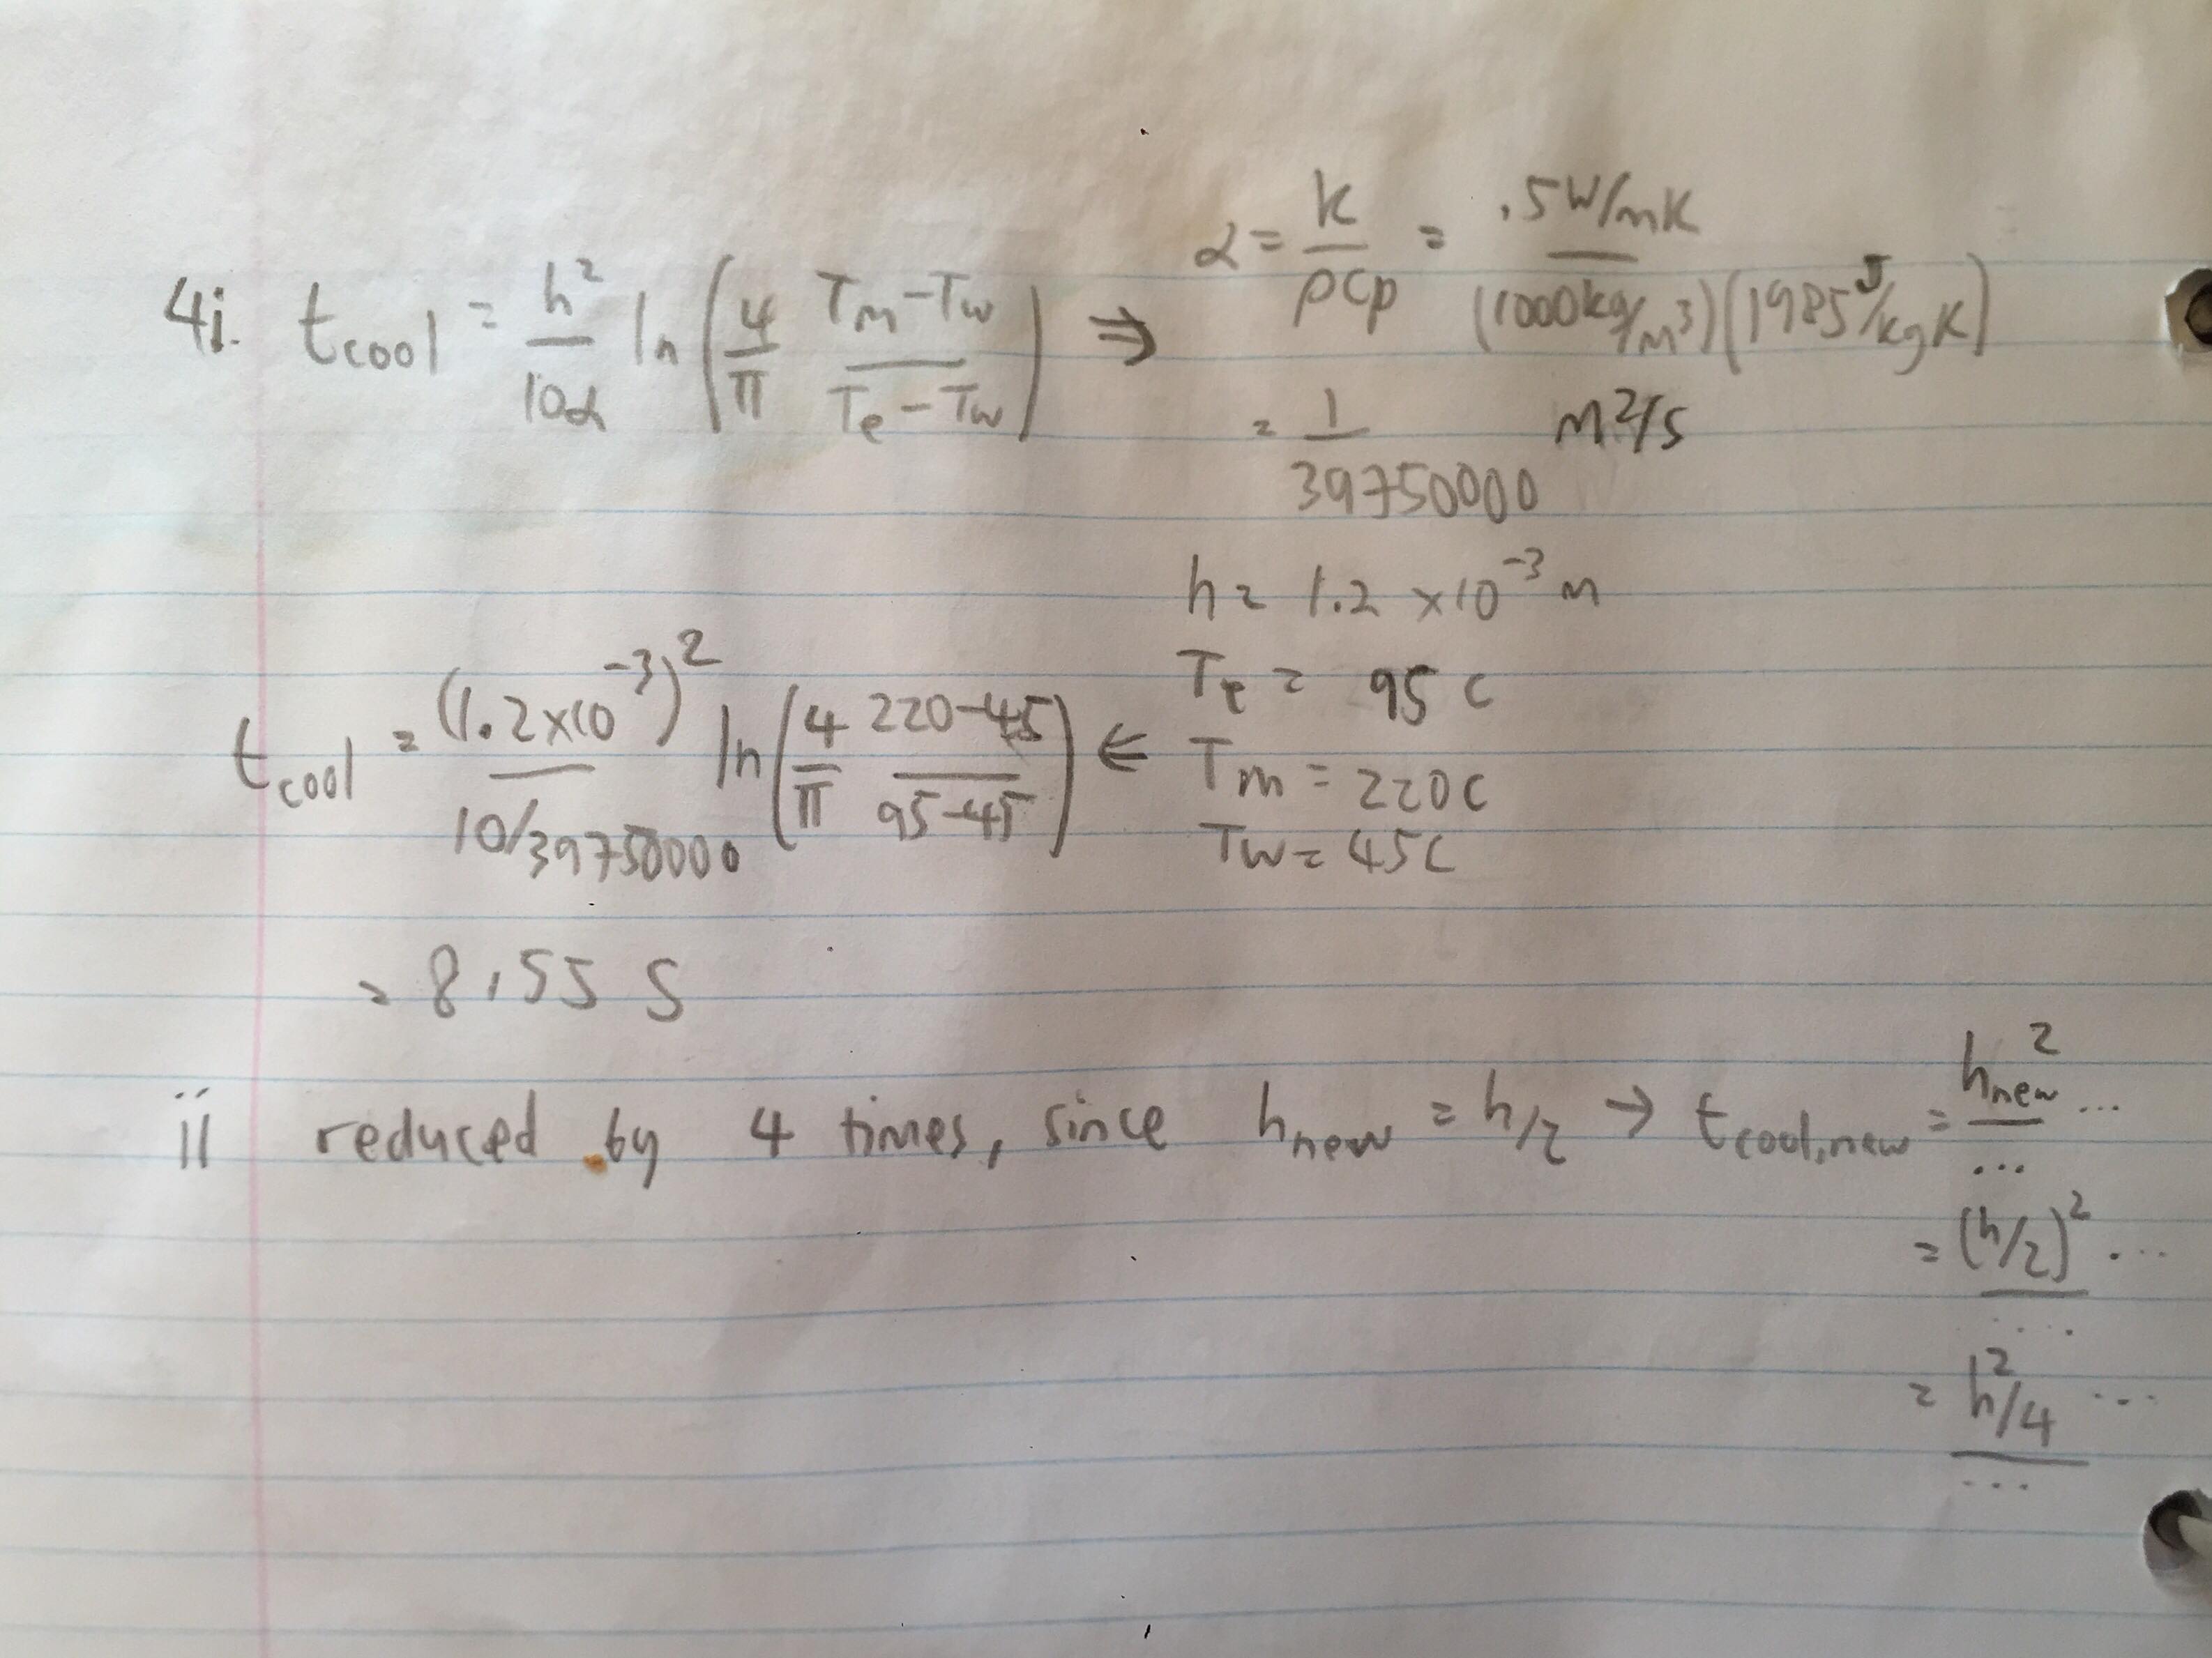 4i. t_cool = h²/10α ln(4/π (Tm-Tw)/(Te-Tw)) ⇒ α = k/ρCp = .5W/mK / (1000kg/m³)(1985J/kgK)
= 1/39750000 m²/s
h = 1.2 x10⁻³ m
Te = 95 C
t_cool = (1.2x10⁻³)² / 10/39750000 ln(4/π (220-45)/(95-45)) ⇐ Tm = 220C
Tw = 45C
= 8.55 S
ii reduced by 4 times, since h_new = h/2 → t_cool,new = h_new² ... / ...
= (h/2)² ... / ....
= h²/4 ... / ...